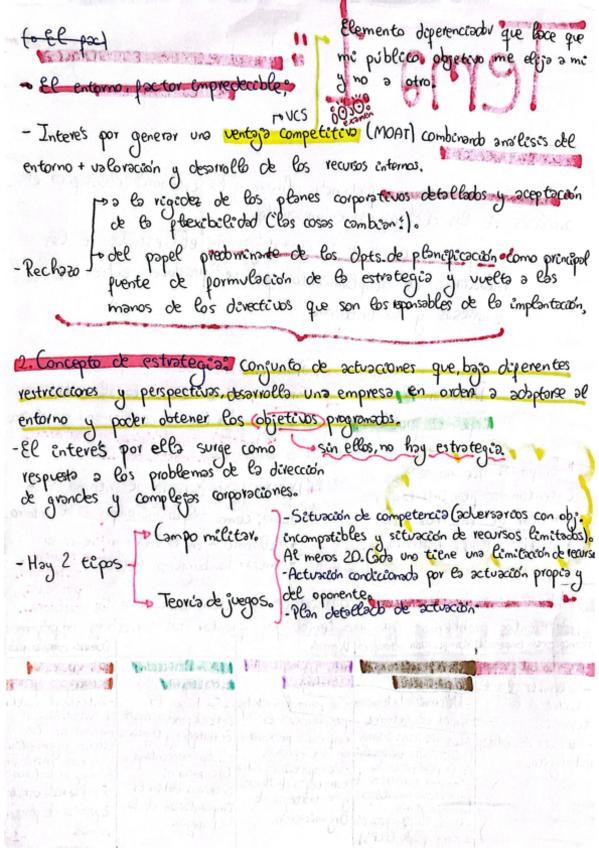 Elemento diferenciador que hace que
mi público objetivo me elija a mi
y no a otro.
- El entorno factor impredecible;
OJO
examen
→ VCS
- Interés por generar una ventaja competitiva (MOAT) combinando análisis del
entorno + valoración y desarrollo de los recursos internos.
- Rechazo
→ a la rigidez de los planes corporativos detallados y aceptación
de la flexibilidad (¡las cosas cambian!).
→ del papel predominante de los dpts. de planificación como principal
fuente de formulación de la estrategia y vuelta a las
manos de los directivos que son los responsables de la implantación,
2. Concepto de estrategia: Conjunto de actuaciones que, bajo diferentes
restricciones y perspectivas, desarrolla una empresa en orden a adaptarse al
entorno y poder obtener los objetivos programados.
→ sin ellos, no hay estrategia.
- El interés por ella surge como
respuesta a los problemas de la dirección
de grandes y complejas corporaciones.
- Hay 2 tipos
→ Campo militar.
→ Teoría de juegos.
- Situación de competencia (adversarios con obj.
incompatibles y situación de recursos limitados).
Al menos 2D. Cada uno tiene una limitación de recurso
- Actuación condicionada por la actuación propia y
del oponente.
- Plan detallado de actuación